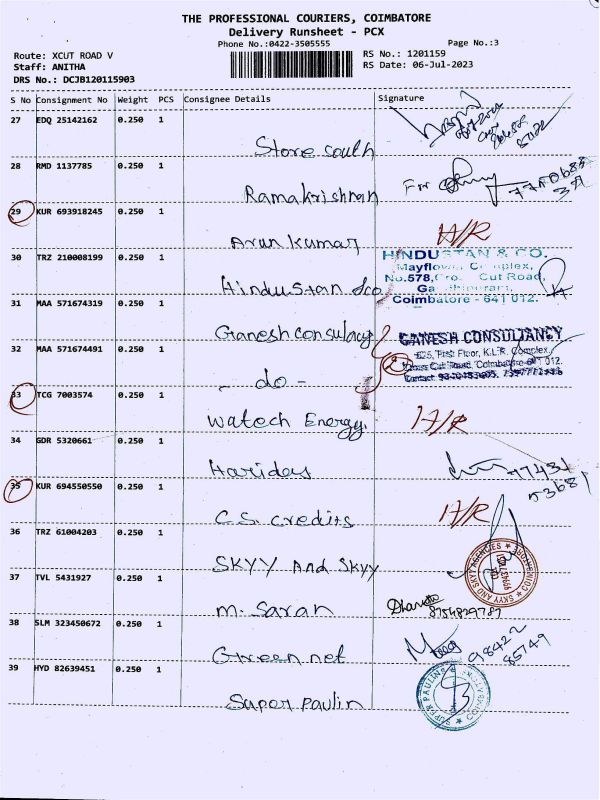 THE PROFESSIONAL COURIERS, COIMBATORE
Delivery Runsheet - PCX
Phone No.:0422-3505555
Page No.:3
Route: XCUT ROAD V
RS No.: 1201159
Staff: ANITHA
RS Date: 06-Jul-2023
DRS No.: DCJB120115903
S No Consignment No Weight PCS Consignee Details Signature
27 EDQ 25142162 0.250 1
Store South
28 RMD 1137785 0.250 1
Ramakrishnan For
29 KUR 693918245 0.250 1
Arun Kumar H/R
30 TRZ 210008199 0.250 1
HINDUSTAN & CO.
Mayflower Complex,
No.578, Cross Cut Road,
Gandhipuram,
Coimbatore - 641 012.
Hindustan &co
31 MAA 571674319 0.250 1
Ganesh consulacy
GANESH CONSULTANCY
First Floor, K.L.R. Complex,
Cross Cut Road, Coimbatore-641 012.
32 MAA 571674491 0.250 1
- do - 2
33 TCG 7003574 0.250 1
Watech Energy. H/R
34 GDR 5320661 0.250 1
Haridas 77431
53681
35 KUR 694550550 0.250 1
C.S. credits H/R
36 TRZ 61004203 0.250 1
SKYY And SKYY
SKYY AND SKYY AGENCIES ★ COIMBATORE ★
37 TVL 5431927 0.250 1
M. Saran
8754829787
38 SLM 323450672 0.250 1
Green net 98422
85749
39 HYD 82639451 0.250 1
Super Paulin
SUPER PAULINS ★ COIMBATORE ★